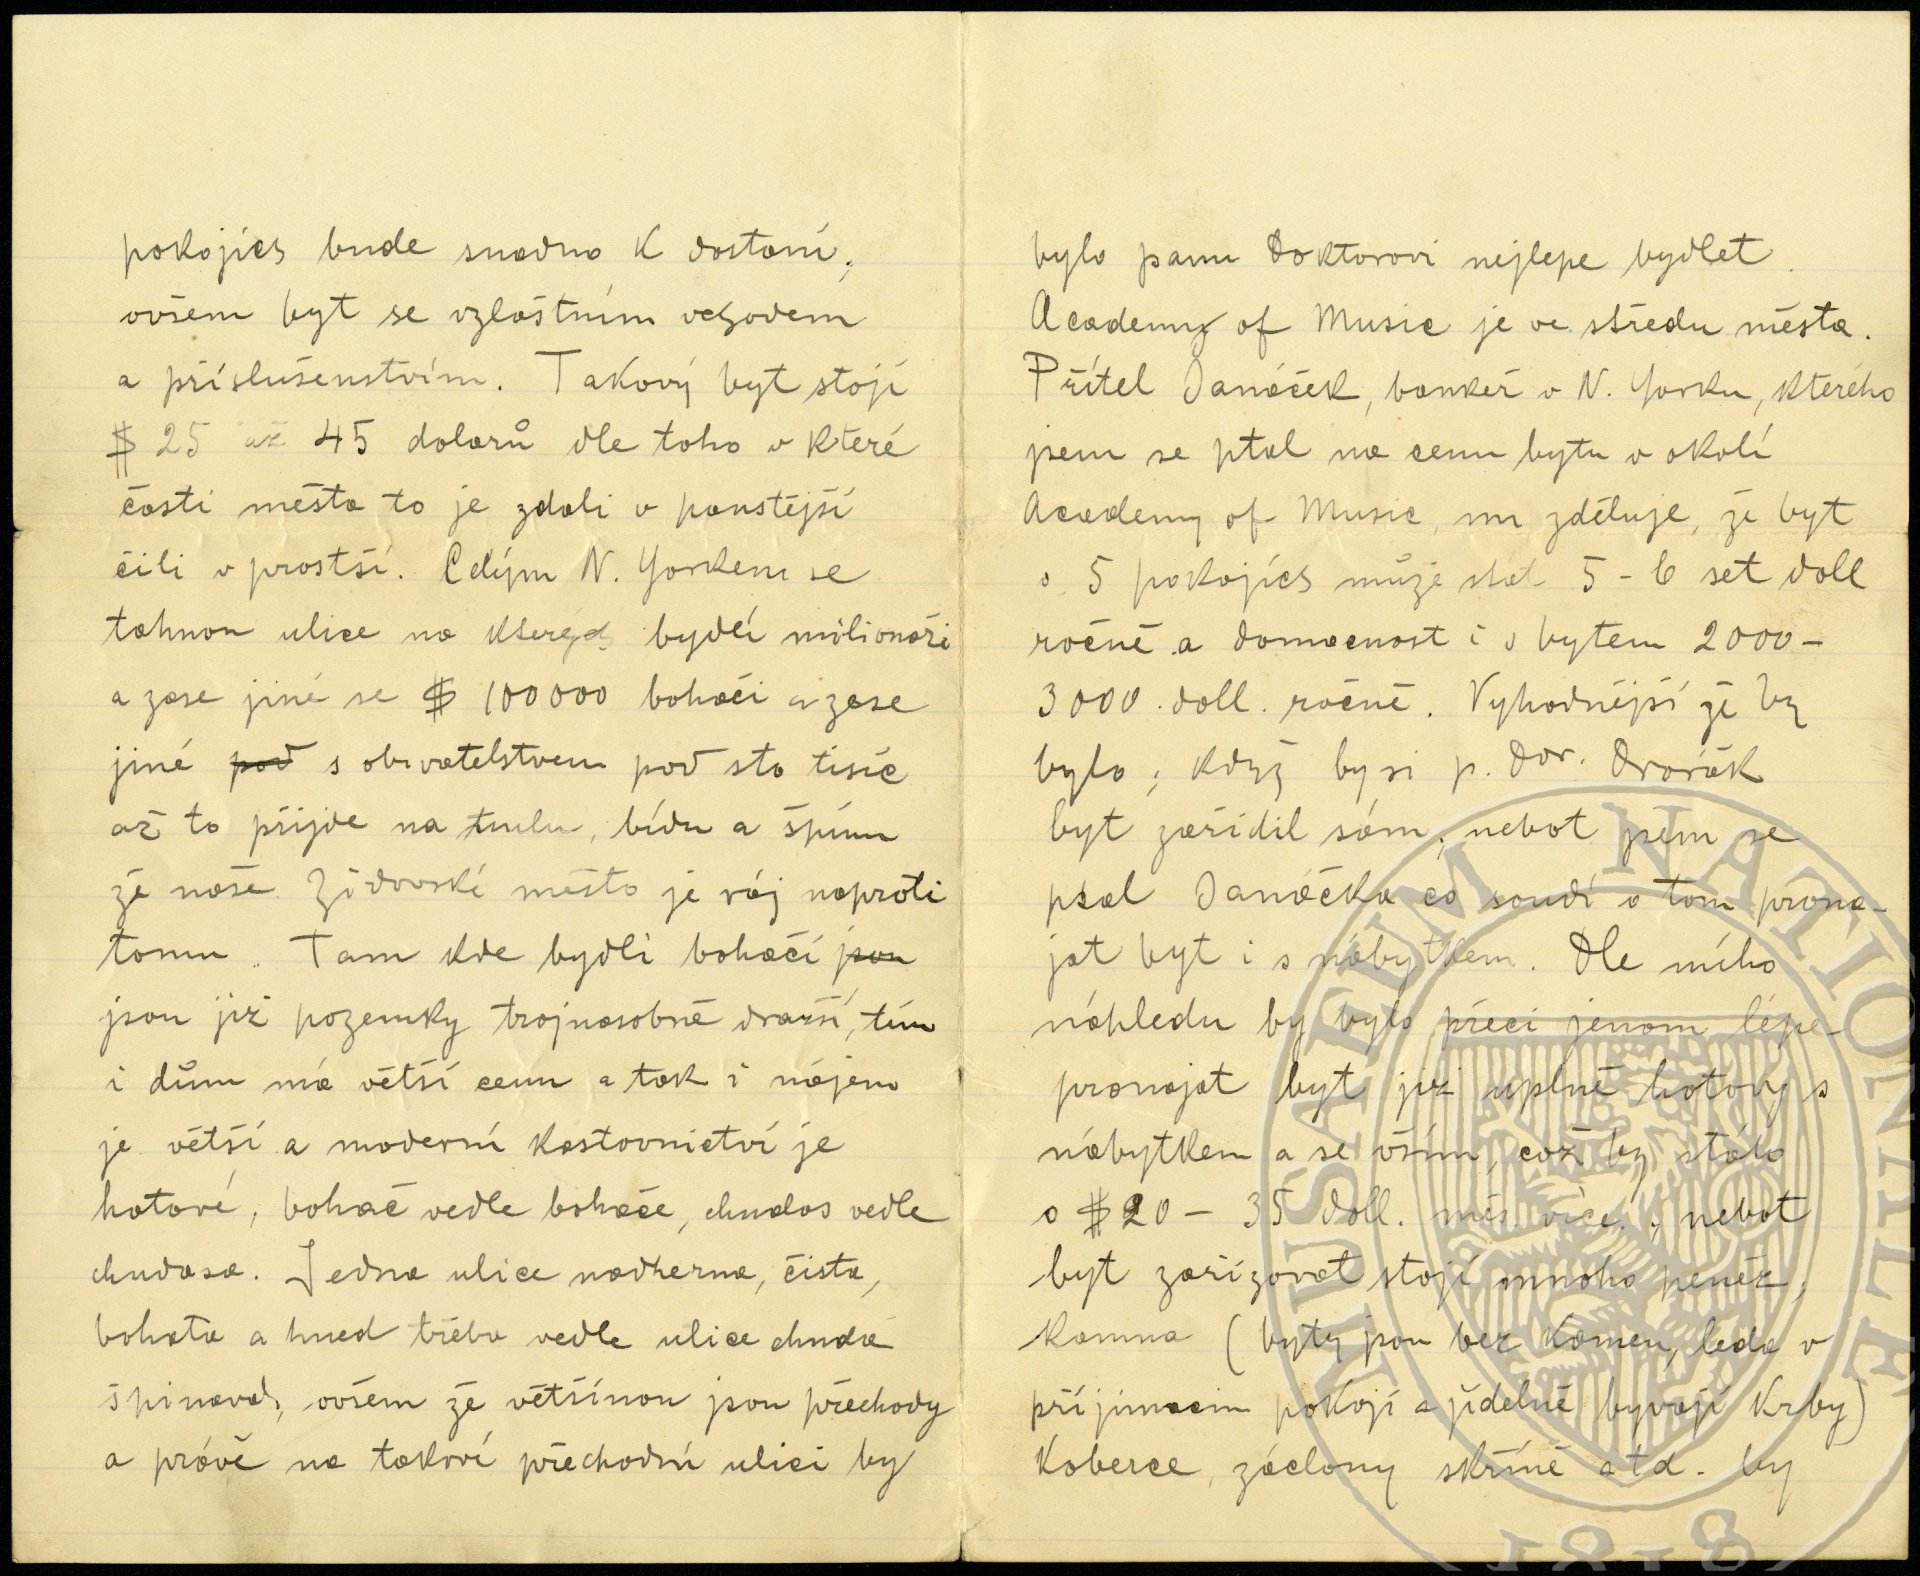 pokojích bude snadno k dostaní,
ovšem byt se vzlaštním vchodem
a příslušenstvím. Takový byt stojí
$ 25 až 45 dolarů dle toho v které
časti města to je zdali v panstější
čili v prostší. Celým N. Yorkem se
tahnou ulice na kterých bydlí milionaři
a zase jiné se $ 100000 bohači a zase
jiné pod s obivatelstvem pod sto tisíc
až to přijde na bídu a špínu
že naše židovské město je ráj naproti
tomu. Tam kde bydlí bohačí jsou
jsou již pozemky trojnasobně dražší, tím
i dům má větší cenu a tak i nájem
je větší a moderní kastovnictví je
hotové, bohač vedle boháče, chudas vedle
chudasa. Jedna ulice nadherna, čista,
bohata a hned třeba vedle ulice chudá
špinavá, ovšem že většínou jsou přechody
a právě na takoví přechodní ulici by
bylo panu Doktorovi nejlepe bydlet.
Academy of Music je ve středu města.
Přítel Janáček, bankéř v N. Yorku, kterého
jsem se ptal na cenu bytu v okolí
Academy of Music, mi zděluje, že byt
o 5 pokojích může stát 5 - 6 set doll
ročně a domacnost i s bytem 2000 -
3000 doll. ročně. Vyhodnější že by
bylo, když by si p. Dor. Dvořák
byt zařídil sám, nebot jsem se
ptal Janáčka co soudí o tom prona-
jat byt i s nábytkem. Dle mího
náhledu by bylo přeci jenom lépe
pronajat byt již uplně hotovy s
nábytkem a se vším, což by stálo
o $ 20 - 35 doll. měs. více, nebot
byt zařizovat stojí mnoho peněz,
kamna (byty jsou bez kamen, leda v
příjimacim pokoji a jídelně bývají krby)
koberce, záclony skříně atd. by
MUSAEUM NATIONALE
1818